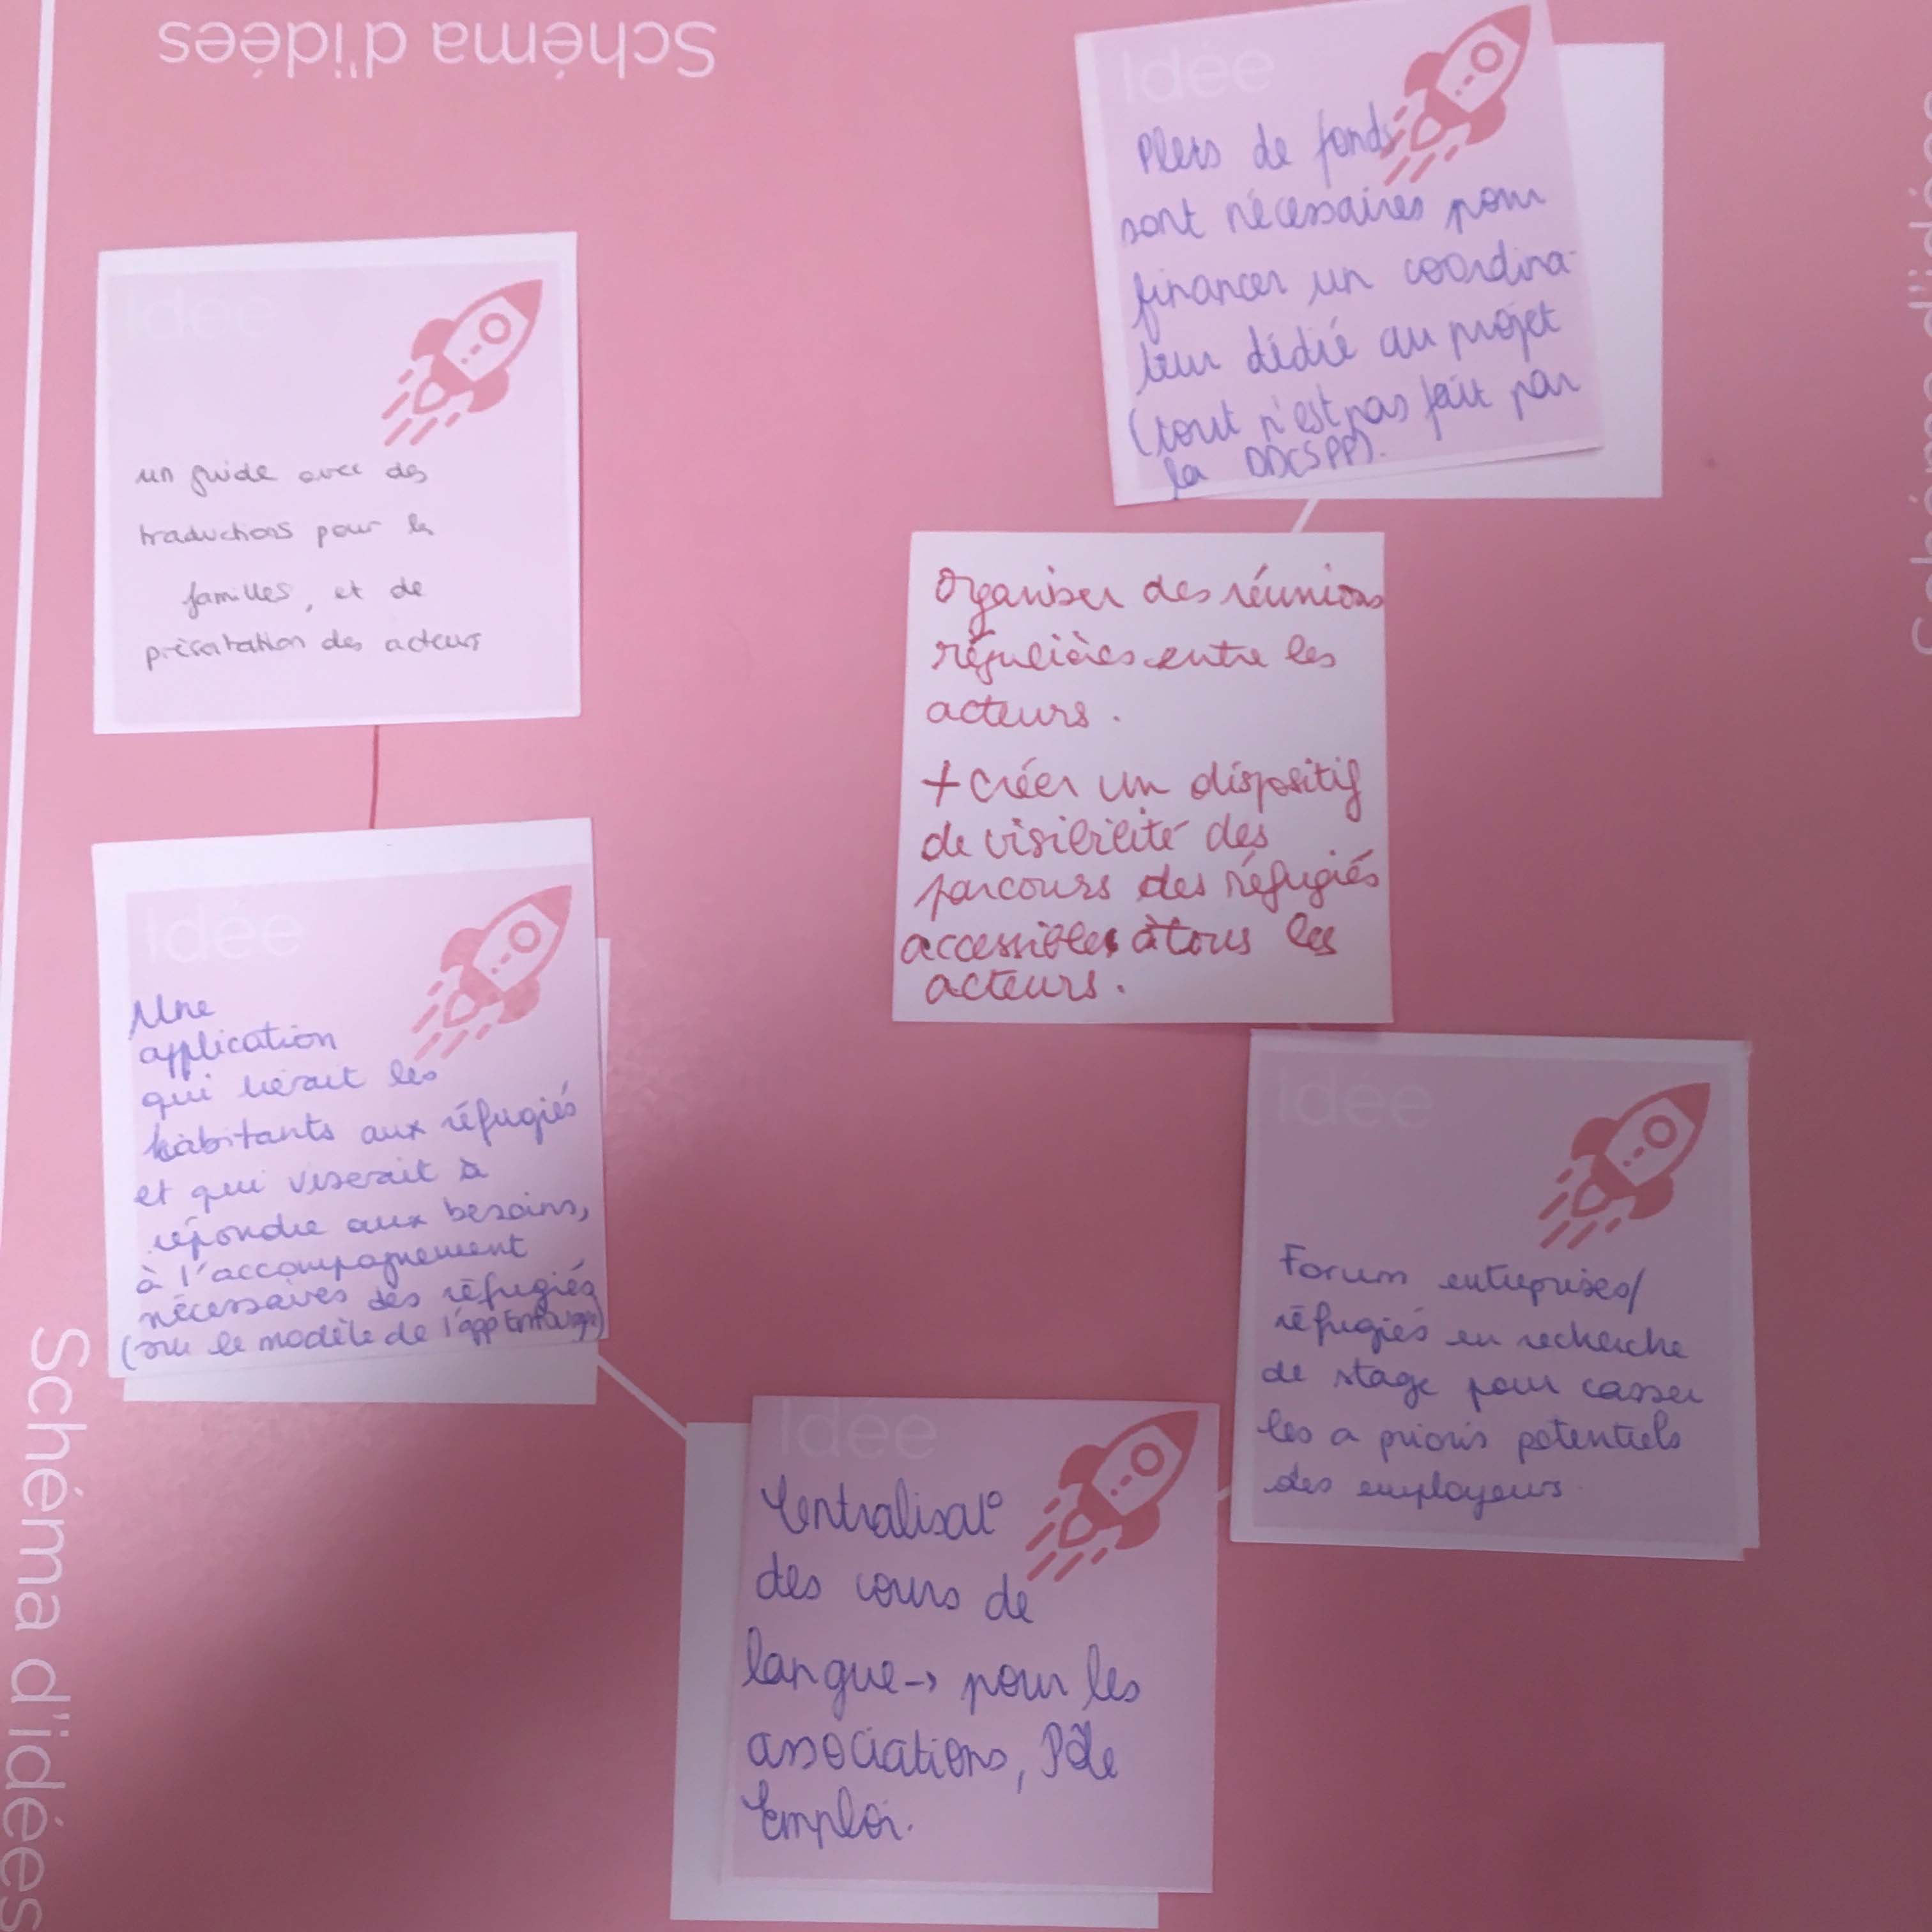 Schéma d'idées
Idée
Plus de fonds
sont nécessaires pour
financer un coordina-
teur dédié au projet
(tout n'est pas fait par
la DDCSPP).
Idée
un guide avec des
traductions pour les
familles, et de
présentation des acteurs
Organiser des réunions
régulières entre les
acteurs.
+ créer un dispositif
de visibilité des
parcours des réfugiés
accessibles à tous les
acteurs.
Idée
Une
application
qui lierait les
habitants aux réfugiés
et qui viserait à
répondre aux besoins,
à l'accompagnement
nécessaires des réfugiés
(sur le modèle de l'app
Idée
Forum entreprises/
réfugiés en recherche
de stage pour casser
les a prioris potentiels
des employeurs.
Idée
Centralisat°
des cours de
langue -> pour les
associations, Pôle
Emploi.
Schéma d'idées
Schéma d'idées